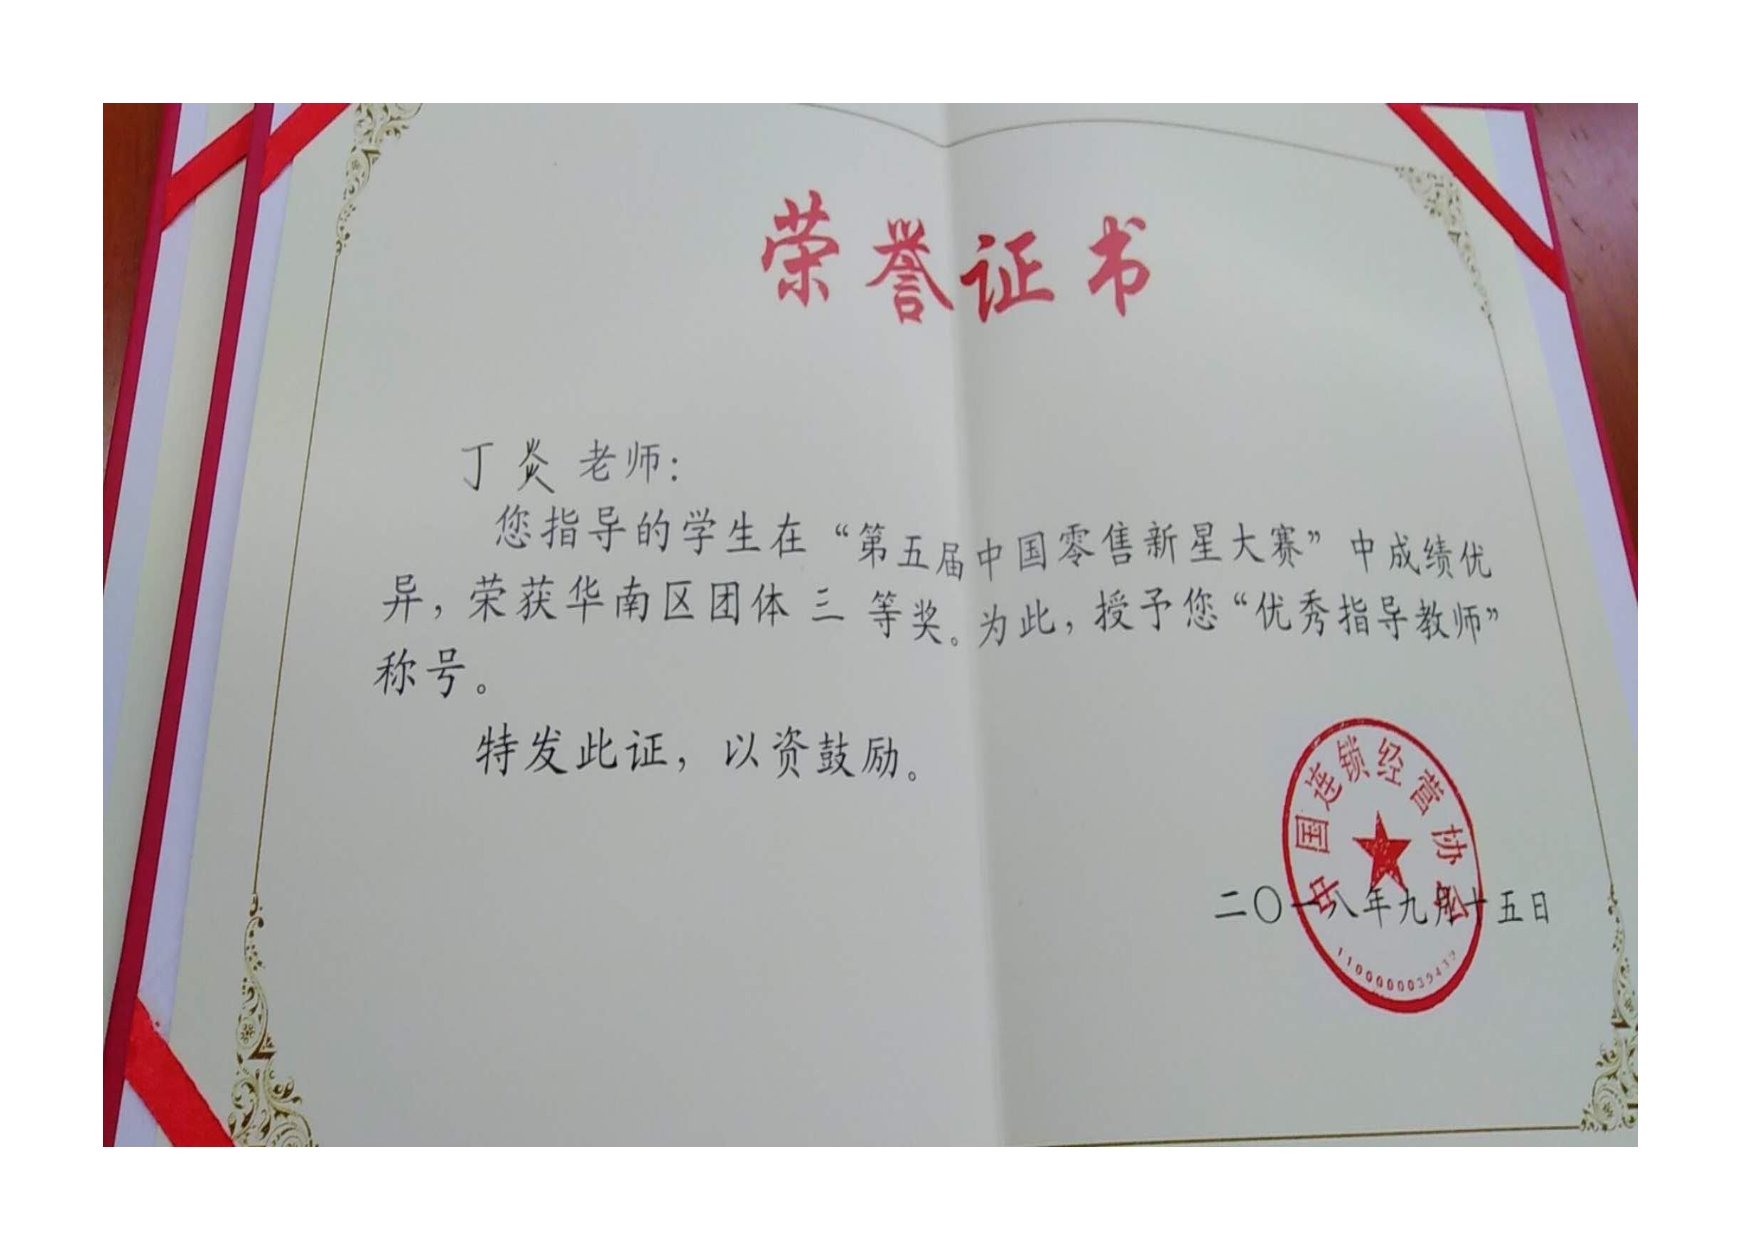 荣誉证书
丁炎 老师：
您指导的学生在“第五届中国零售新星大赛”中成绩优
异，荣获华南区团体 三 等奖。为此，授予您“优秀指导教师”
称号。
特发此证，以资鼓励。
中国连锁经营协会
二〇一八年九月十五日
1100000039439